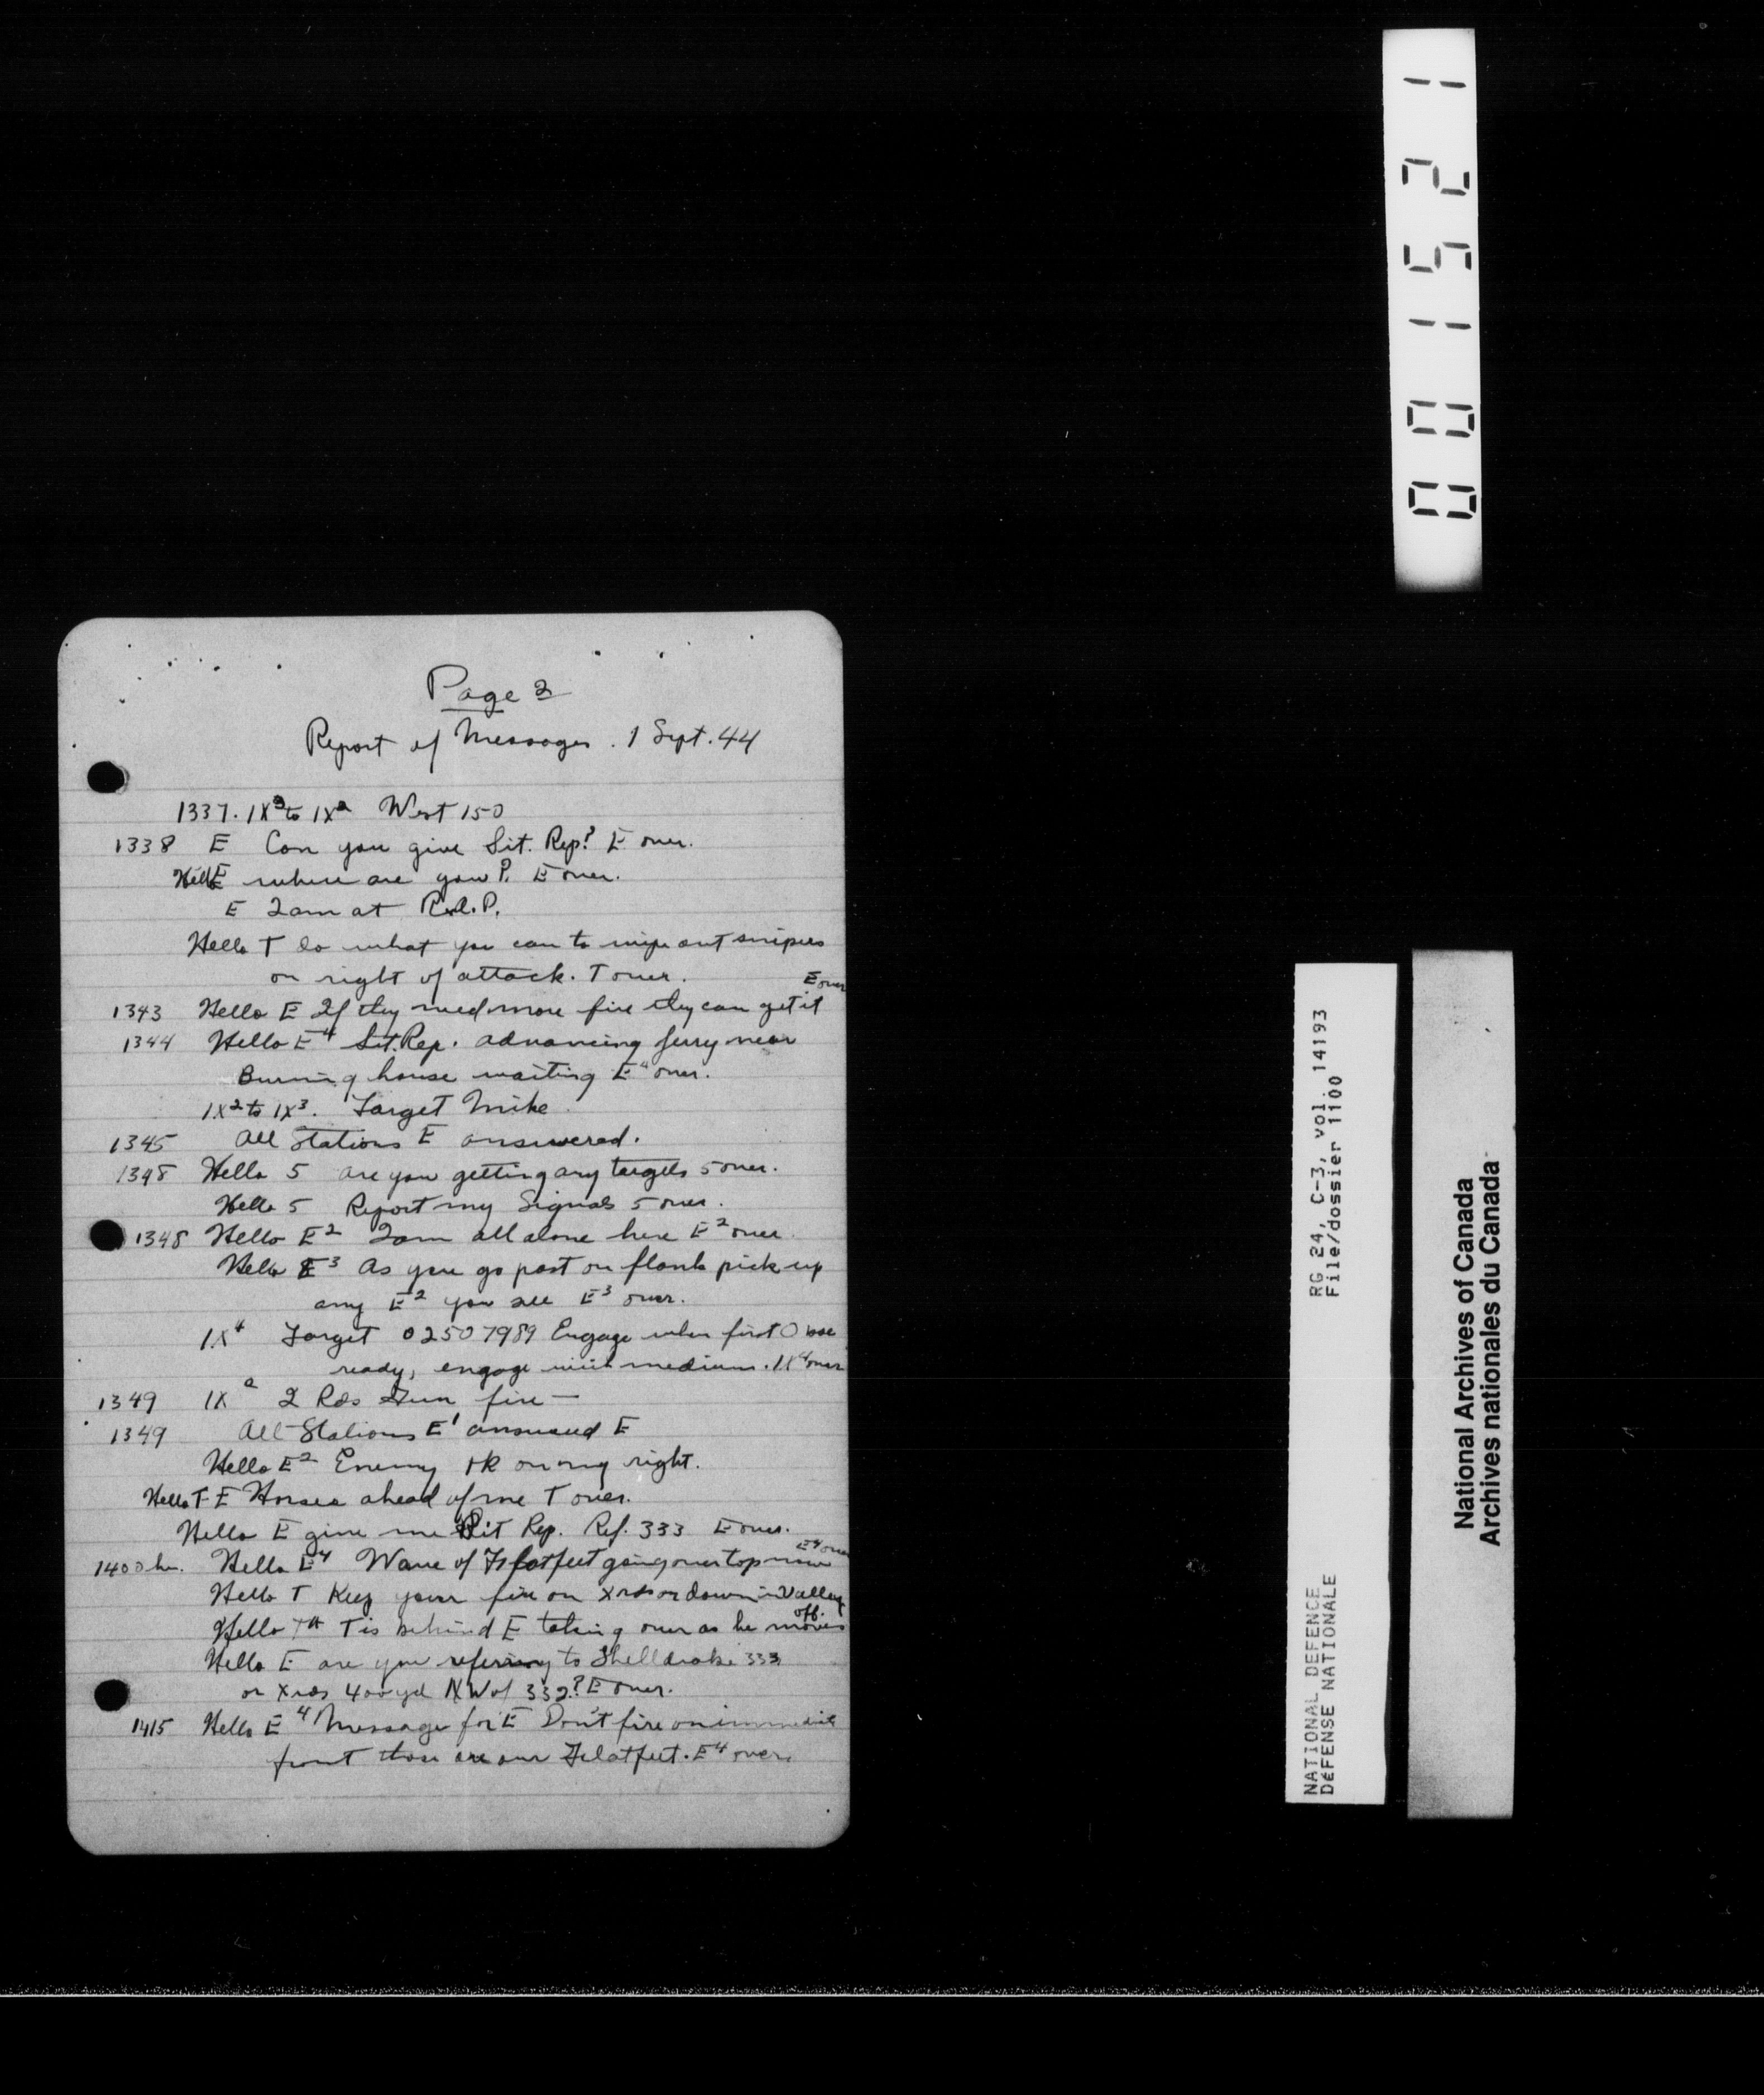 Page 2
Report of Messages . 1 Sept. 44
1337. 1X³ to 1X² West 150
1338 E Can you give Sit. Rep? E over.
Hello E where are you? E over.
E I am at R.A.P.
Hello T do what you can to wipe out snipers
on right of attack. T over.
1343 Hello E If they need more fire they can get it E over
1344 Hello E⁴ Sit. Rep. advancing Jerry near
Burning house waiting E⁴ over.
1X² to 1X³. Target Mike
1345 All Stations E answered.
1348 Hello 5 are you getting any targets 5 over.
Hello 5 Report my Signals 5 over.
1348 Hello E² I am all alone here E² over.
Hello E³ As you go past on flank pick up
any E² you see E³ over.
1X⁴ Target 02507989 Engage when first
ready, engage with medium. 1X⁴ over
1349 1X² 2 Rds Gun fire —
1349 All Stations E¹ answered E
Hello E² Enemy tk on my right.
Hello T-E Horses ahead of me T over.
Hello E give me Sit Rep. Ref. 333 E over.
1400 hr. Hello E⁴ Wave of flatfeet going over top now E⁴ over
Hello T Keep your fire on xrds or down in Valley
Hello T is behind E taking over as he moves off.
Hello E are you referring to Shelldrake 333
or Xrds 400 yd NW of 332? E over.
1415 Hello E⁴ Message for E Don't fire on immediate
front those are our Flatfeet. E⁴ over.
001521
RG 24, C-3, vol. 14193
File/dossier 1100
NATIONAL DEFENCE
DéFENSE NATIONALE
National Archives of Canada
Archives nationales du Canada